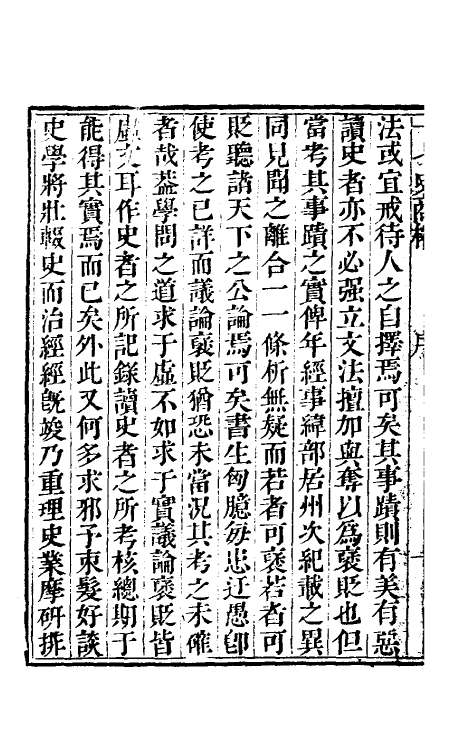 法或宜戒待人之自擇焉可矣其事蹟則有美有惡
讀史者亦不必强立文法擅加與奪以為褒貶也但
當考其事蹟之實俾年經事緯部居州次紀載之異
同見聞之離合一一條析無疑而若者可褒若者可
貶聽諸天下之公論焉可矣書生匈臆每患迂愚卽
使考之已詳而議論褒貶猶恐未當況其考之未確
者哉葢學問之道求于虛不如求于實議論褒貶皆
虛文耳作史者之所記錄讀史者之所考核總期于
能得其實焉而已矣外此又何多求邪予束髮好談
史學將壯輟史而治經經旣竣乃重理史業摩硏排